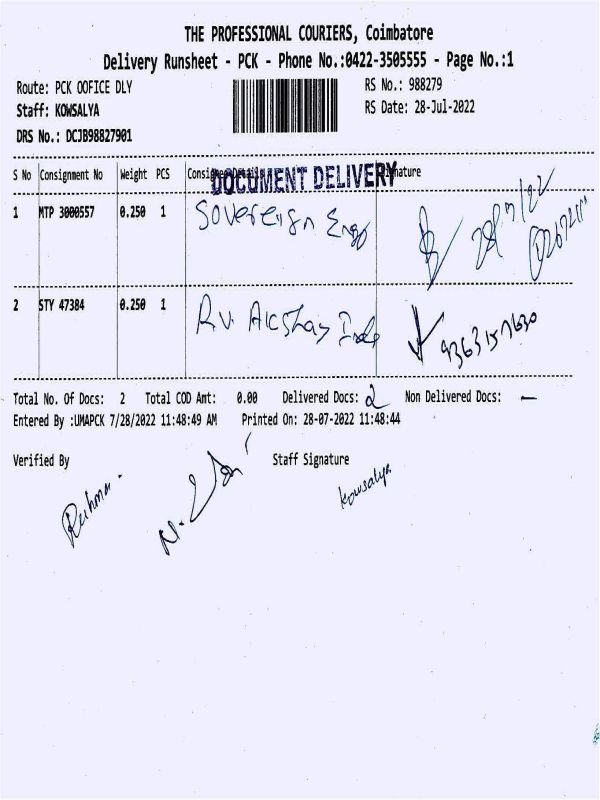 THE PROFESSIONAL COURIERS, Coimbatore
Delivery Runsheet - PCK - Phone No.:0422-3505555 - Page No.:1
Route: PCK OOFICE DLY RS No.: 988279
Staff: KOWSALYA RS Date: 28-Jul-2022
DRS No.: DCJB98827901
S No Consignment No Weight PCS Consignee Details Signature
DOCUMENT DELIVERY
1 MTP 3000557 0.250 1 Sovereign Engg 28/7/22
2 STY 47384 0.250 1 R.V. Akshay Inds 9363157630
Total No. Of Docs: 2 Total COD Amt: 0.00 Delivered Docs: 2 Non Delivered Docs: -
Entered By :UMAPCK 7/28/2022 11:48:49 AM Printed On: 28-07-2022 11:48:44
Verified By Staff Signature
Kowsalya